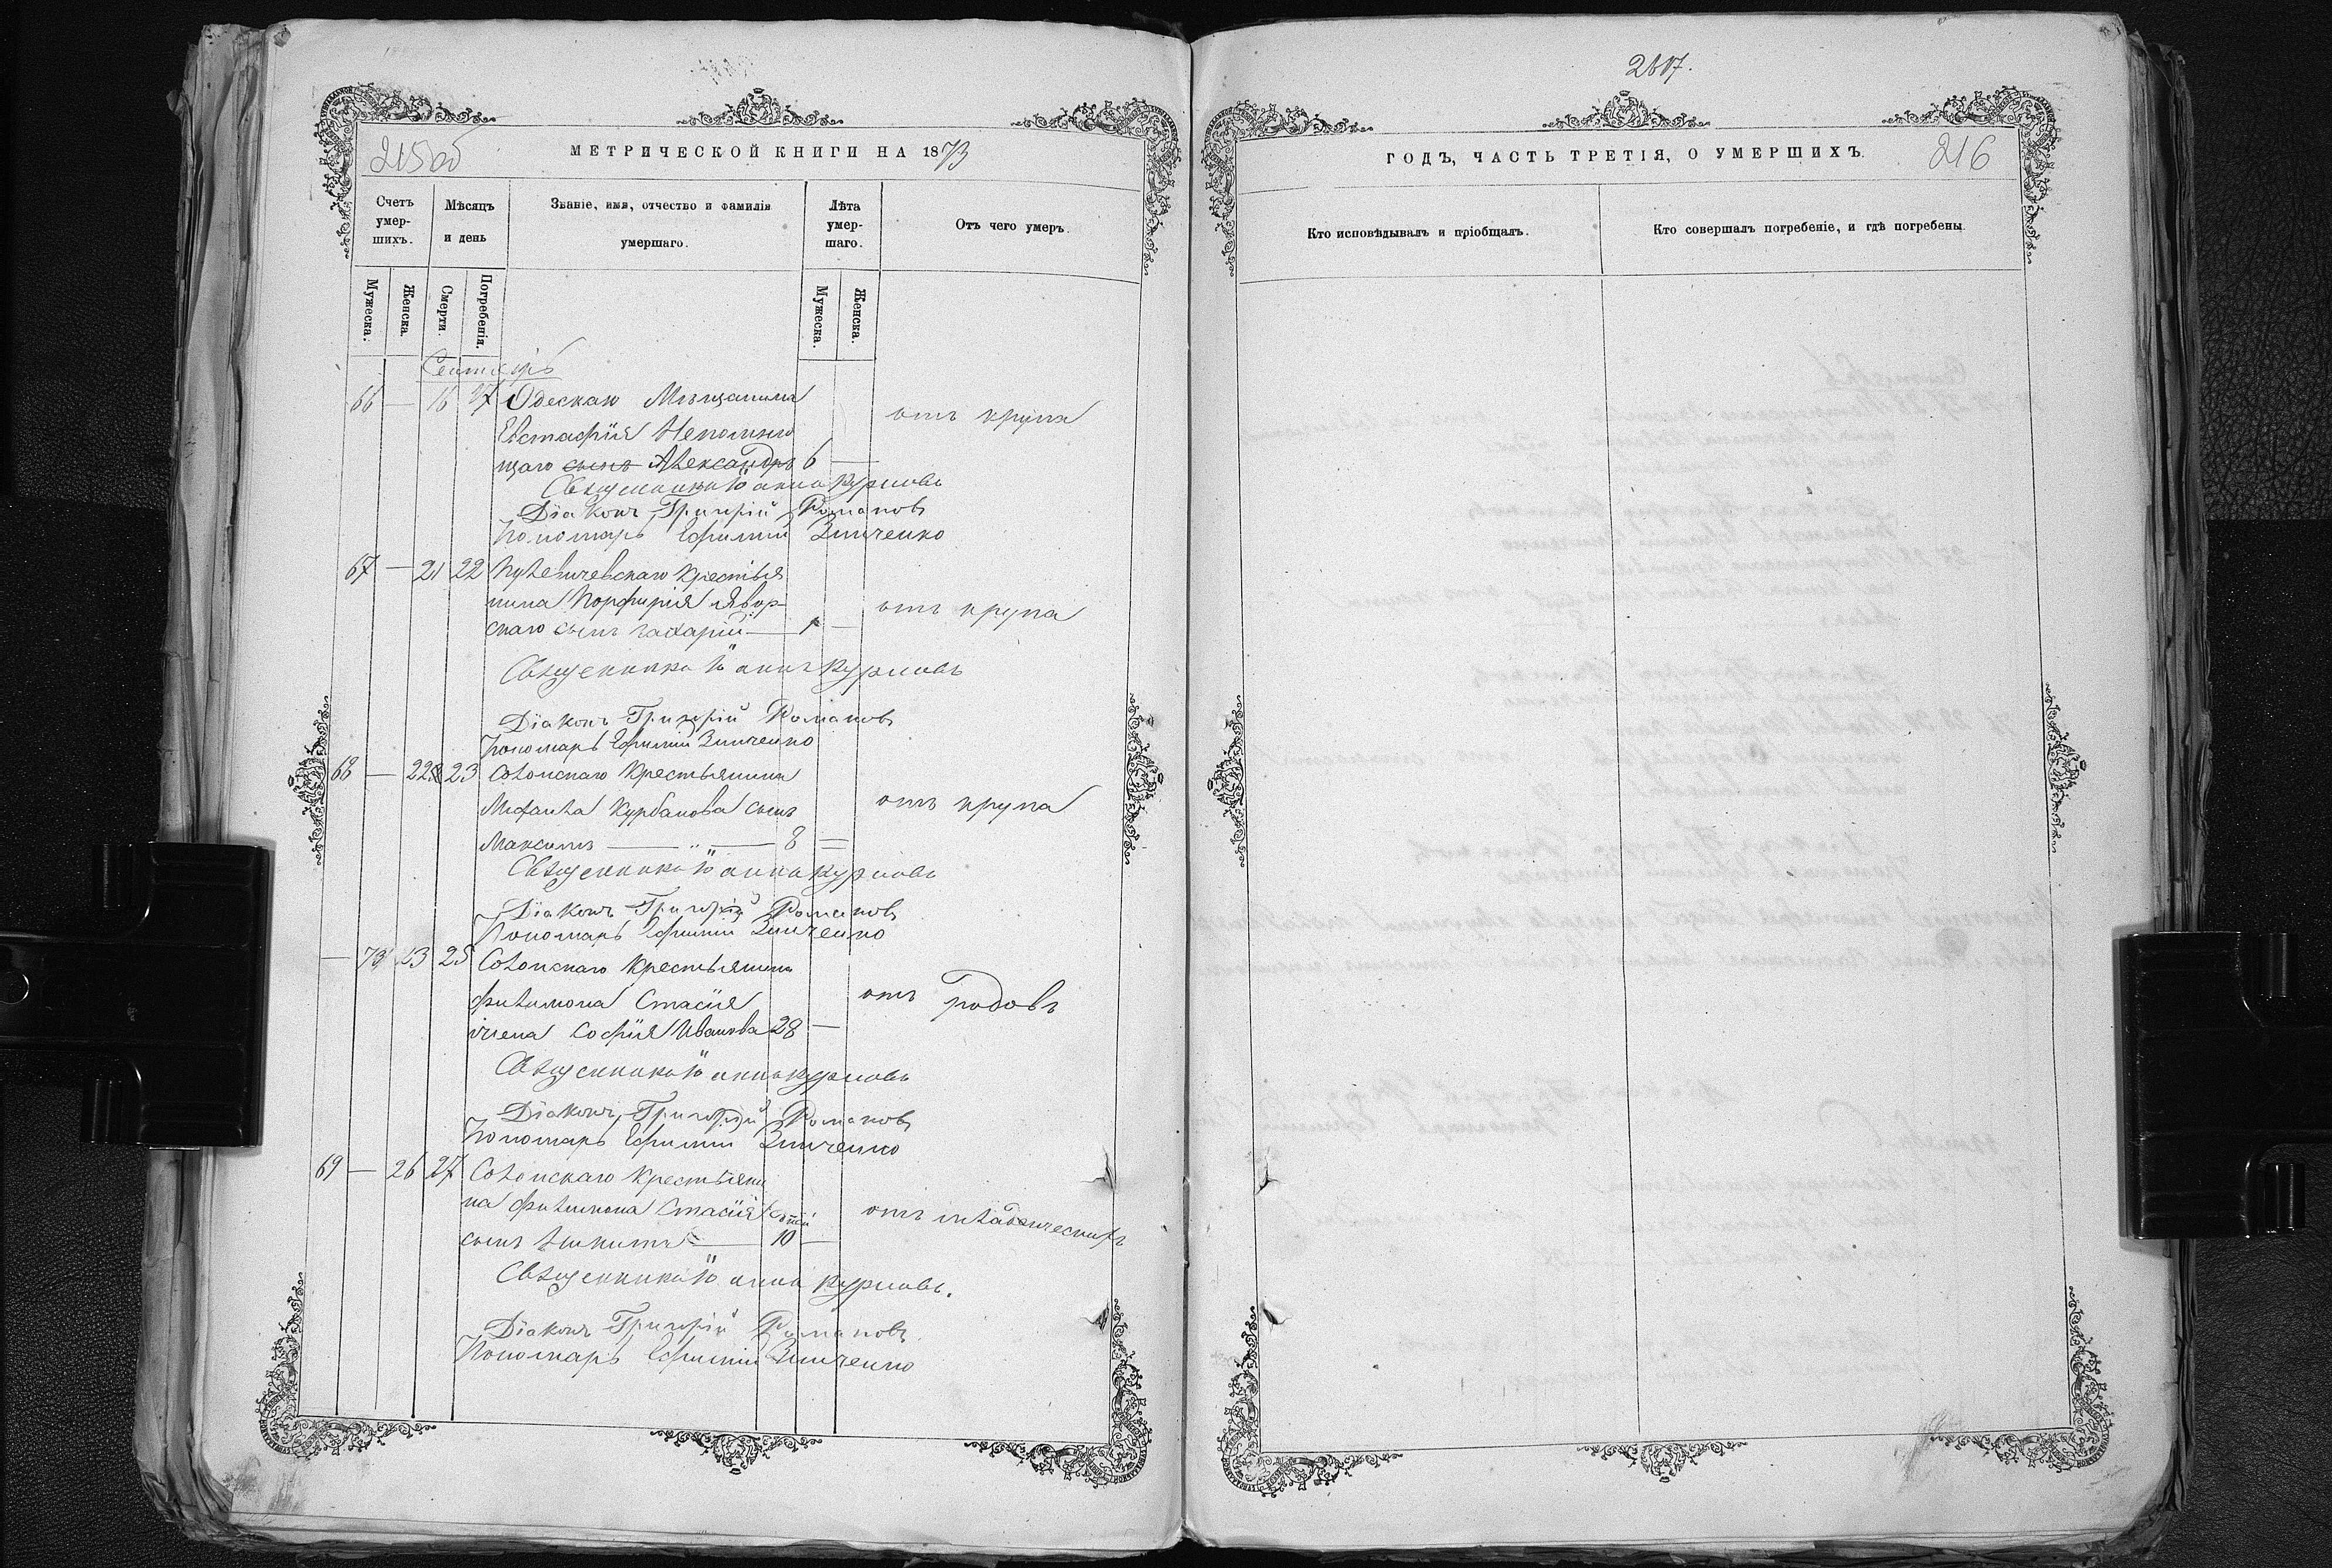 215об
МЕТРИЧЕСКОЙ КНИГИ НА 1873
Счетъ умер- шихъ.
Мѣсяцъ и день
Званіе, имя, отчество и фамилія умершаго.
Лѣта умер- шаго.
Отъ чего умеръ.
Мужеска.
Женска.
Смерти
Погребенія.
Мужеска.
Женска.
Сентябрь
66 — 16 17 Одескаго Мѣщанина
Евстафія Непомню
щаго сынъ Александръ 6 — отъ крупа
Священникъ Іоаннъ Курловъ
Діаконъ Григорій Романовъ
Пономарь Ефимій Зинченко
67 — 21 22 крестья
нина Порфирія Явор-
скаго сынъ Захарій — 1 — отъ крупа
Священникъ Іоаннъ Курловъ
Діаконъ Григорій Романовъ
Пономарь Ефимій Зинченко
68 — 22 23 Солонскаго крестьянина
Михаила Курбанова сынъ
Максимъ — 8 = отъ крупа
Священникъ Іоаннъ Курловъ
Діаконъ Григорій Романовъ
Пономарь Ефимій Зинченко
— 73 23 25 Солонскаго крестьянина
Филимона Стасія
жена Софія Иванова 28 — отъ родовъ
Священникъ Іоаннъ Курловъ
Діаконъ Григорій Романовъ
Пономарь Ефимій Зинченко
69 — 26 27 Солонскаго крестьяни
на Филимона Стасія
сынъ Никита — 10 — отъ
Священникъ Іоаннъ Курловъ.
Діаконъ Григорій Романовъ
Пономарь Ефимій Зинченко
ГОДЪ, ЧАСТЬ ТРЕТІЯ, О УМЕРШИХЪ.
216
Кто исповѣдывалъ и пріобщалъ.
Кто совершалъ погребеніе, и гдѣ погребены.